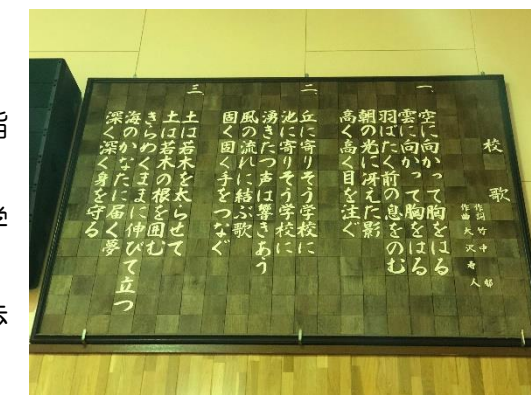 校歌
作詞 竹中 郁
作曲 大沢寿人
一、
空に向かって胸をはる
雲に向かって胸をはる
羽ばたく前の息をのむ
朝の光に冴えた影
高く高く目を注ぐ
二、
丘に寄りそう学校に
池に寄りそう学校に
湧きたつ声は響きあう
風の流れに結ぶ歌
固く固く手をつなぐ
三、
土は若木を太らせて
土は若木の根を囲む
きらめくままに伸びて立つ
海のかなたに届く夢
深く深く身を守る